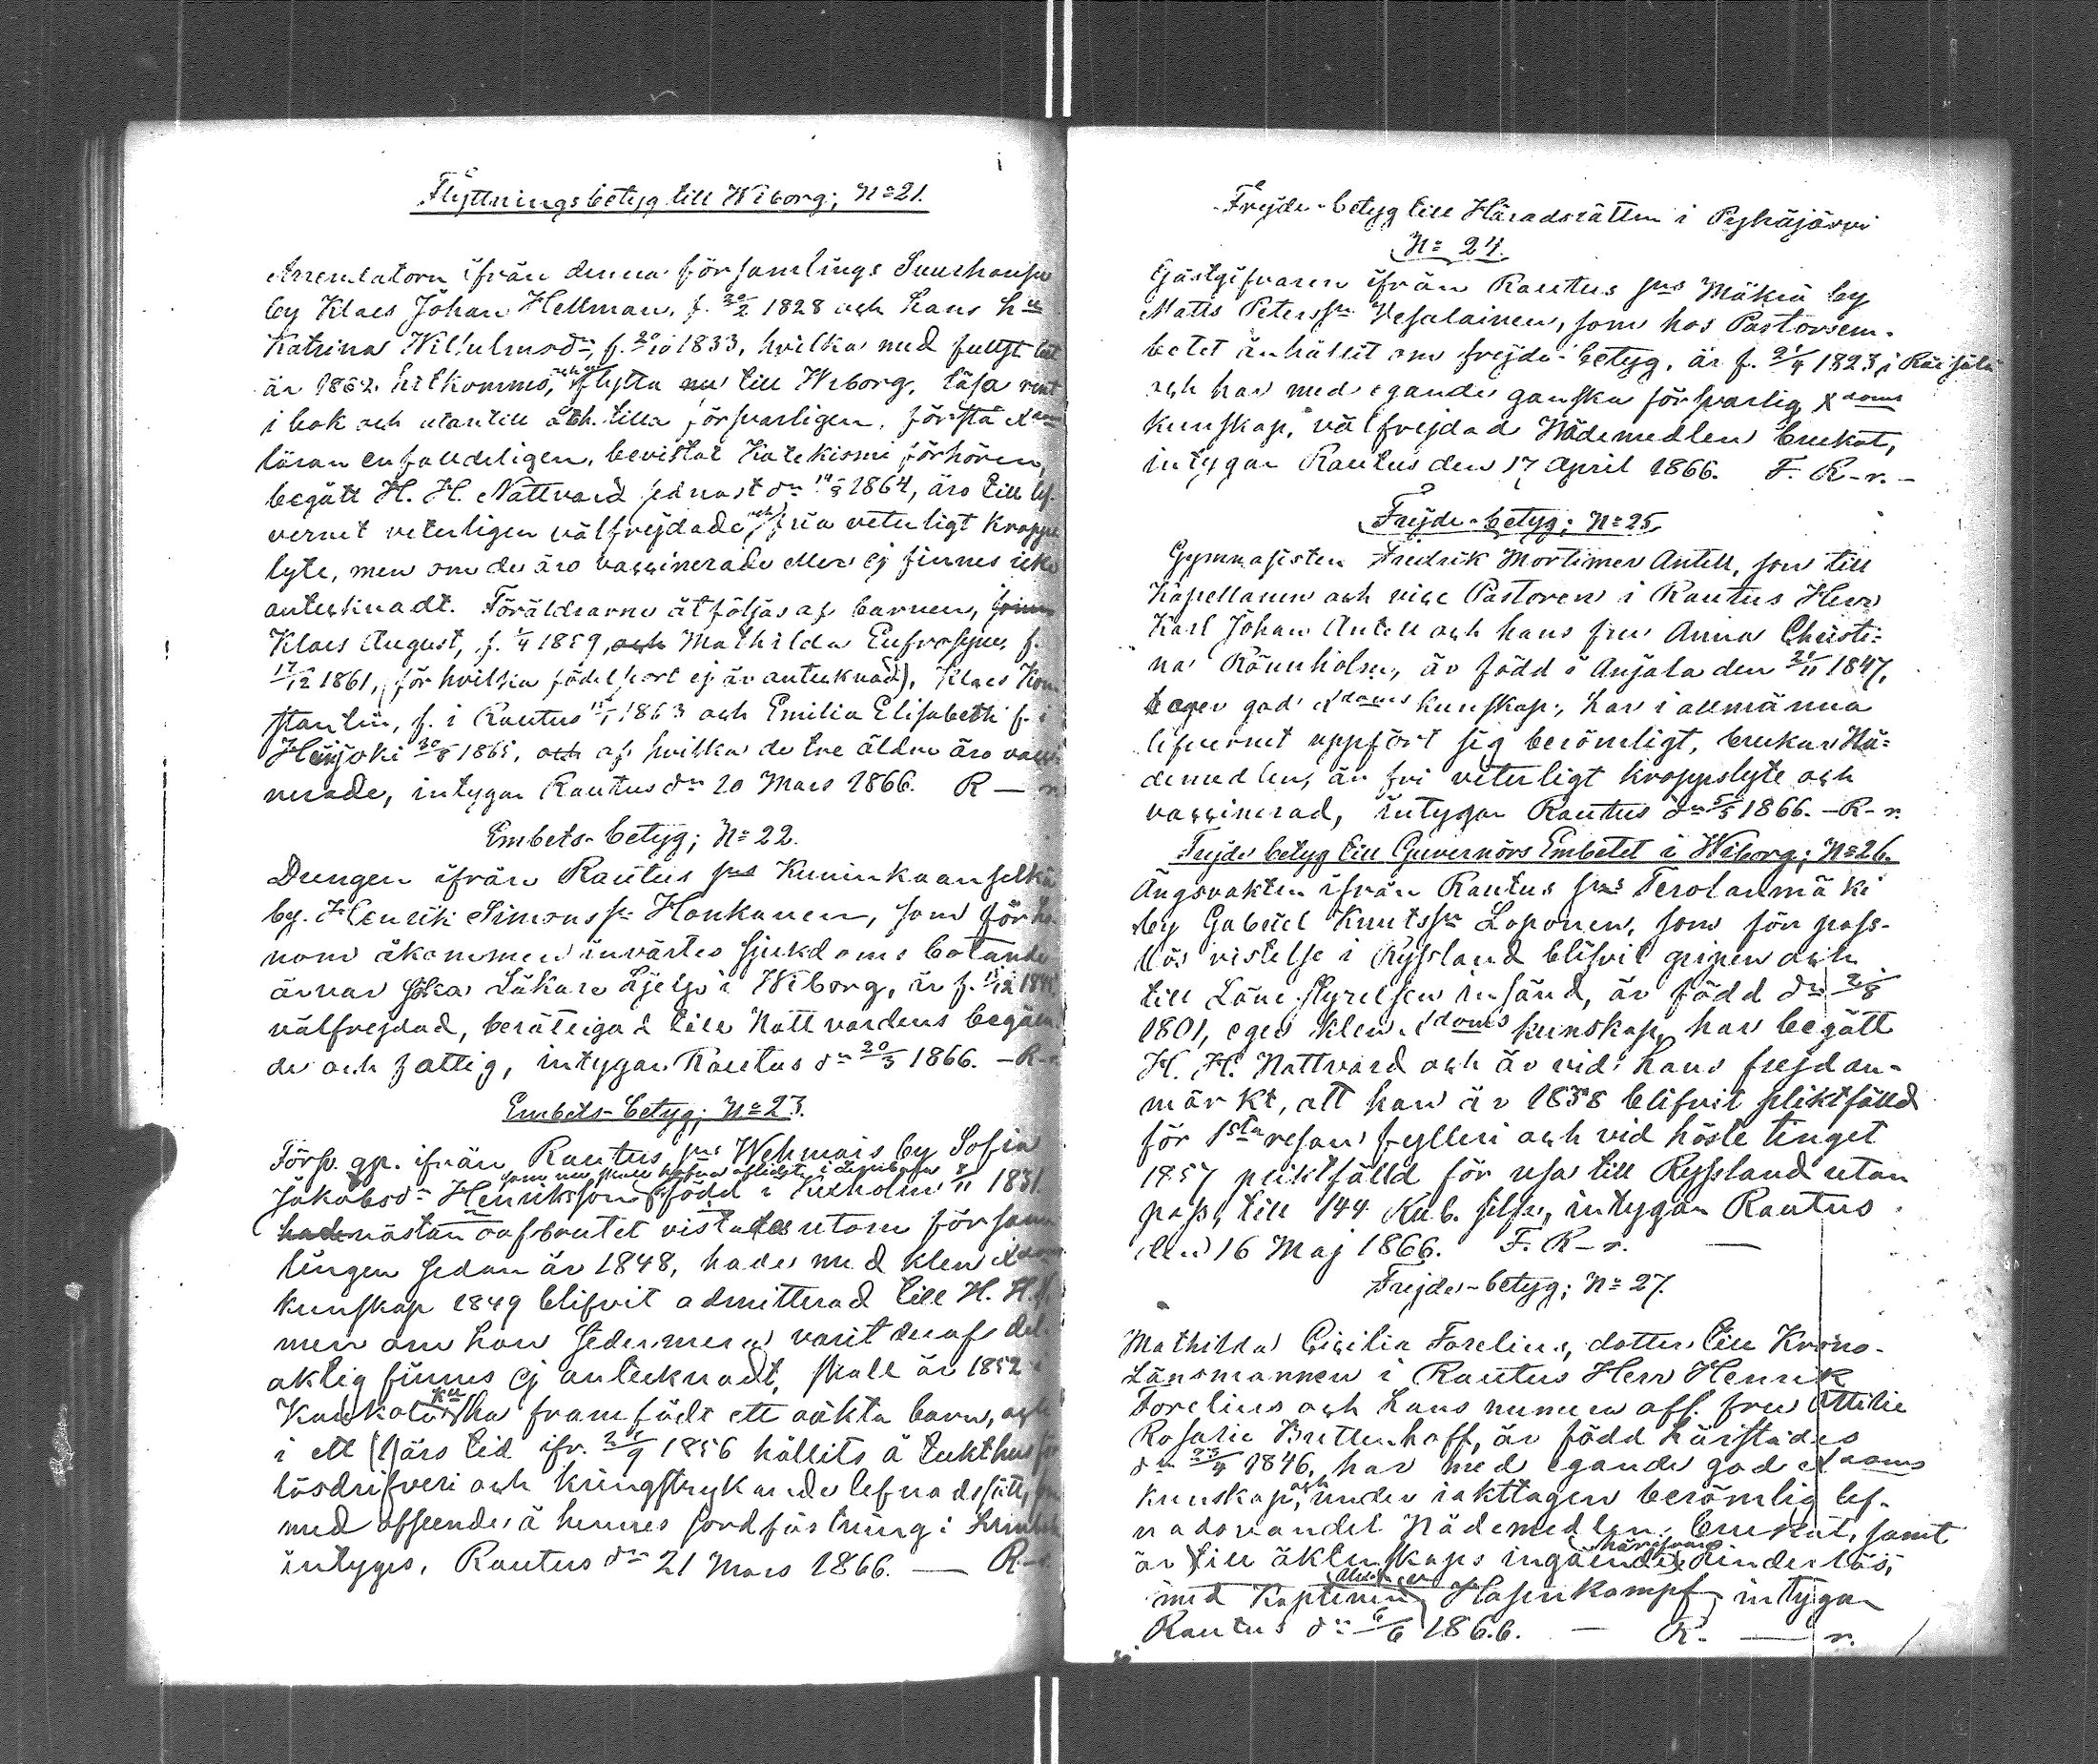 Flyttningsbetyg till Wiborg; No 21.
Arrendatorn ifrån denna församlings Suurhousu
by Klaes Johan Hellman, f. 20/2 1828 och hans hu
Katrina Wilhelmsdr, f. 20/10 1833, hvilka med
år 1862 hitkommo, flytta nu till Wiborg, läsa rent
i bok och utantill försvarligen, förstå Xdoms
läran enfaldeligen, bevistat Katekismi förhören,
begått H. H. Nattvard sednast dn 1864, äro till lef-
vernet veterligen välfrejdade, och fria veterligt kropps
lyte, men om de äro vaccinerade eller ej finnes icke
antecknadt. Föräldrarne åtföljas af barnen,
Klaes August, f. 1859, och Mathilda Eufrosyne, f.
17/12 1861, (för hvilka födelseort ej är antecknad), Klaes Kon-
stantin, f. i Rautus 1863 och Emilia Elisabeth f. i
Heinjoki 20/8 1865, och af hvilka de tre äldre äro vacci
nerade, intygar Rautus dn 20 Mars 1866. R — r
Embets-betyg; No 22.
Drengen ifrån Rautus sns Kuninkaanselkä
by Henrik Simonsson Honkanen, som för ho-
nom åkommen invärtes sjukdoms botande
ärnar söka Läkare hjelp i Wiborg, är f. /12
välfrejdad, berättigad till Nattvardens begåen
de och fattig, intygar Rautus dn 20/3 1866. —R-r
Embets-betyg; No 23.
Förp. qp. ifrån Rautus sns Wehmais by Sofia
som nu skall hafva aflidit i
Jakobsdr Henriksson född i Kexholm 8/11 1831
hade nästan oafbrutet vistats utom försam
lingen sedan år 1848, hade med klen Xdoms
kunskap 1849 blifvit admitterad till H. H. N.
men om hon sedermera varit deraf del-
aktig finnes ej antecknadt, skall år 1852 i
framfödt ett oäkta barn, och
i ett (1) års tid ifr. 1856 hållits å tukthus för
lösdrifveri och kringstrykande lefnadssätt,
med afseende å hennes jordfästning i
intyges, Rautus dn 21 Mars 1866. — R-r
Frejde-betyg till Häradsrätten i Pyhäjärvi
No 24.
Gästgifvaren ifrån Rautus sns Mäkrä by
Matts Petersson Vesalainen, som hos Pastorsem-
betet anhållit om frejde-betyg, är f. 21/4 1823, i Räisälä
och har med egande ganska försvarlig Xdoms
kunskap, välfrejdad Nådemedlen brukat,
intygar Rautus den 17 April 1866. F. R-r. -
Frejde-betyg; No 25.
Gymnasisten Fredrik Mortimer Antell, son till
Kapellanen och vice Pastoren i Rautus Herr
Karl Johan Antell och hans fru Anna Christi=
na Rönnholm, är född i Anjala den 21/11 1847,
eger god Xdoms kunskap, har i allmänna
lefvernet uppfört sig berömligt, brukar Nå=
demedlen, är fri veterligt kroppslyte och
vaccinerad, intygar Rautus dn 5/5 1866. —R-r.
Frejde betyg till Guvernörs Embetet i Wiborg; No 26.
Ängsvakten ifrån Rautus sns Terolanmäki
by Gabriel Knutsson Loponen, som för pass-
lös vistelse i Ryssland blifvit gripen och
till Läne styrelsen insänd, är född dn 2/8
1801, eger klen Xdoms kunskap, har begått
H. H. Nattvard och är vid hans frejd an-
märkt, att han år 1838 blifvit pliktfälld
för 1sta resan fylleri och vid höste tinget
1857 pliktfälld för resa till Ryssland utan
pass, till 144 Rub. silfver, intygar Rautus
den 16 Maj 1866. F. R-r. —
Frejde-betyg; No 27.
Mathilda Cicilia Forelius, dotter till Krono-
Länsmannen i Rautus Herr Henrik
Forelius och hans numera afl. fru Ottilie
Rosalie Bruttenhoff, är född härstädes
dn 23/4 1846, har med egande god Xdoms
kunskap, och under iakttagen berömlig lef-
nadsvandel Nådemedlen brukat, samt
härifrån
är till äktenskaps ingående hinderlös,
med Kaptenen Hasenkampf, intygar
Rautus dn 6/6 1866. — R. — r.